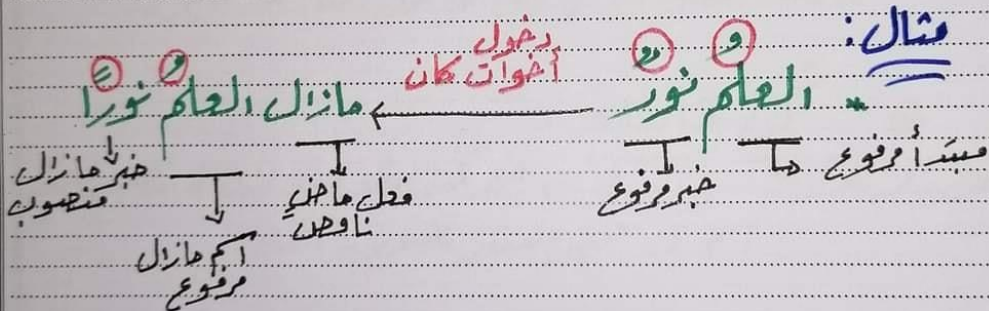 مثال:
العلمُ نورٌ
دخول
أخوات كان
مازال العلمُ نورًا
مبتدأ مرفوع
خبر مرفوع
فعل ماضٍ
ناقص
اسم مازال
مرفوع
خبر مازال
منصوب